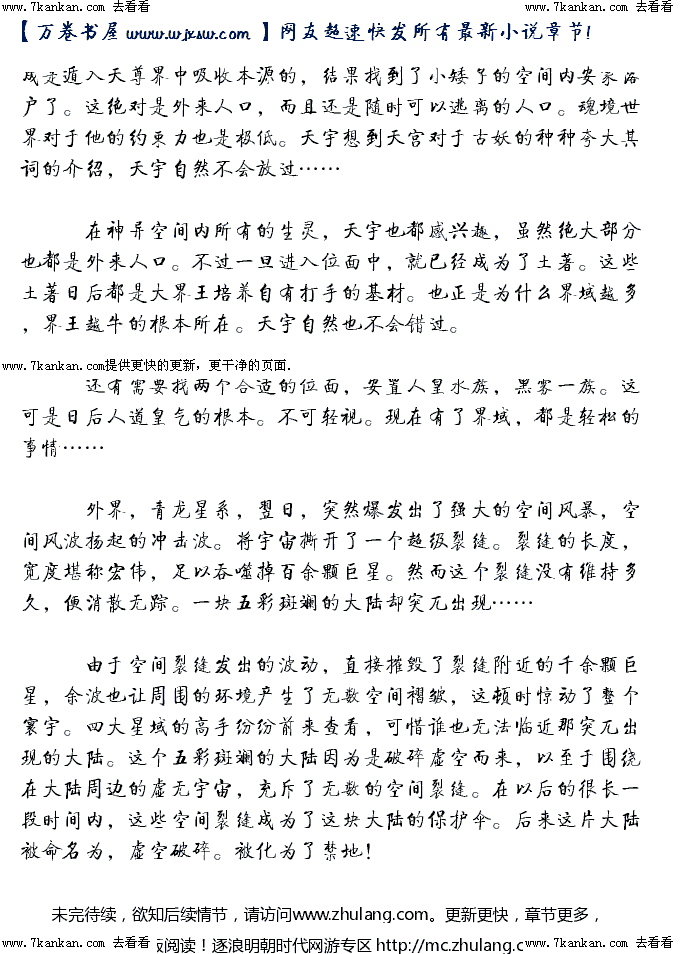 www.7kankan.com 去看看 www.7kankan.com 去看看 www.7kankan.com 去看看
【万卷书屋 www.wjxsw.com 】网友超速快发所有最新小说章节!
成是遁入天尊界中吸收本源的，结果找到了小矮子的空间内安家落
户了。这绝对是外来人口，而且还是随时可以逃离的人口。魂境世
界对于他的约束力也是极低。天宇想到天宫对于古妖的种种夸大其
词的介绍，天宇自然不会放过……
在神异空间内所有的生灵，天宇也都感兴趣，虽然绝大部分
也都是外来人口。不过一旦进入位面中，就已经成为了土著。这些
土著日后都是大界王培养自有打手的基材。也正是为什么界域越多
，界王越牛的根本所在。天宇自然也不会错过。
www.7kankan.com提供更快的更新，更干净的页面.
还有需要找两个合适的位面，安置人皇水族，黑雾一族。这
可是日后人道皇气的根本。不可轻视。现在有了界域，都是轻松的
事情……
外界，青龙星系，翌日，突然爆发出了强大的空间风暴，空
间风波扬起的冲击波。将宇宙撕开了一个超级裂缝。裂缝的长度，
宽度堪称宏伟，足以吞噬掉百余颗巨星。然而这个裂缝没有维持多
久，便消散无踪。一块五彩斑斓的大陆却突兀出现……
由于空间裂缝发出的波动，直接摧毁了裂缝附近的千余颗巨
星，余波也让周围的环境产生了无数空间褶皱，这顿时惊动了整个
寰宇。四大星域的高手纷纷前来查看，可惜谁也无法临近那突兀出
现的大陆。这个五彩斑斓的大陆因为是破碎虚空而来，以至于围绕
在大陆周边的虚无宇宙，充斥了无数的空间裂缝。在以后的很长一
段时间内，这些空间裂缝成为了这块大陆的保护伞。后来这片大陆
被命名为，虚空破碎。被化为了禁地！
未完待续，欲知后续情节，请访问www.zhulang.com。更新更快，章节更多，
www.7kankan.com 去看看 阅读！逐浪明朝时代网游专区 http://mc.zhulang.c www.7kankan.com 去看看